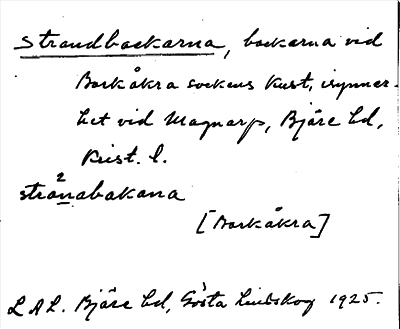 Strandbackarna, backarna vid
Barkåkra sockens kust, isynner-
het vid Magnarp, Bjäre hd,
Krist. l.
2
strånabakana
[Barkåkra]
LAL. Bjäre hd, Gösta Lindskog 1925.